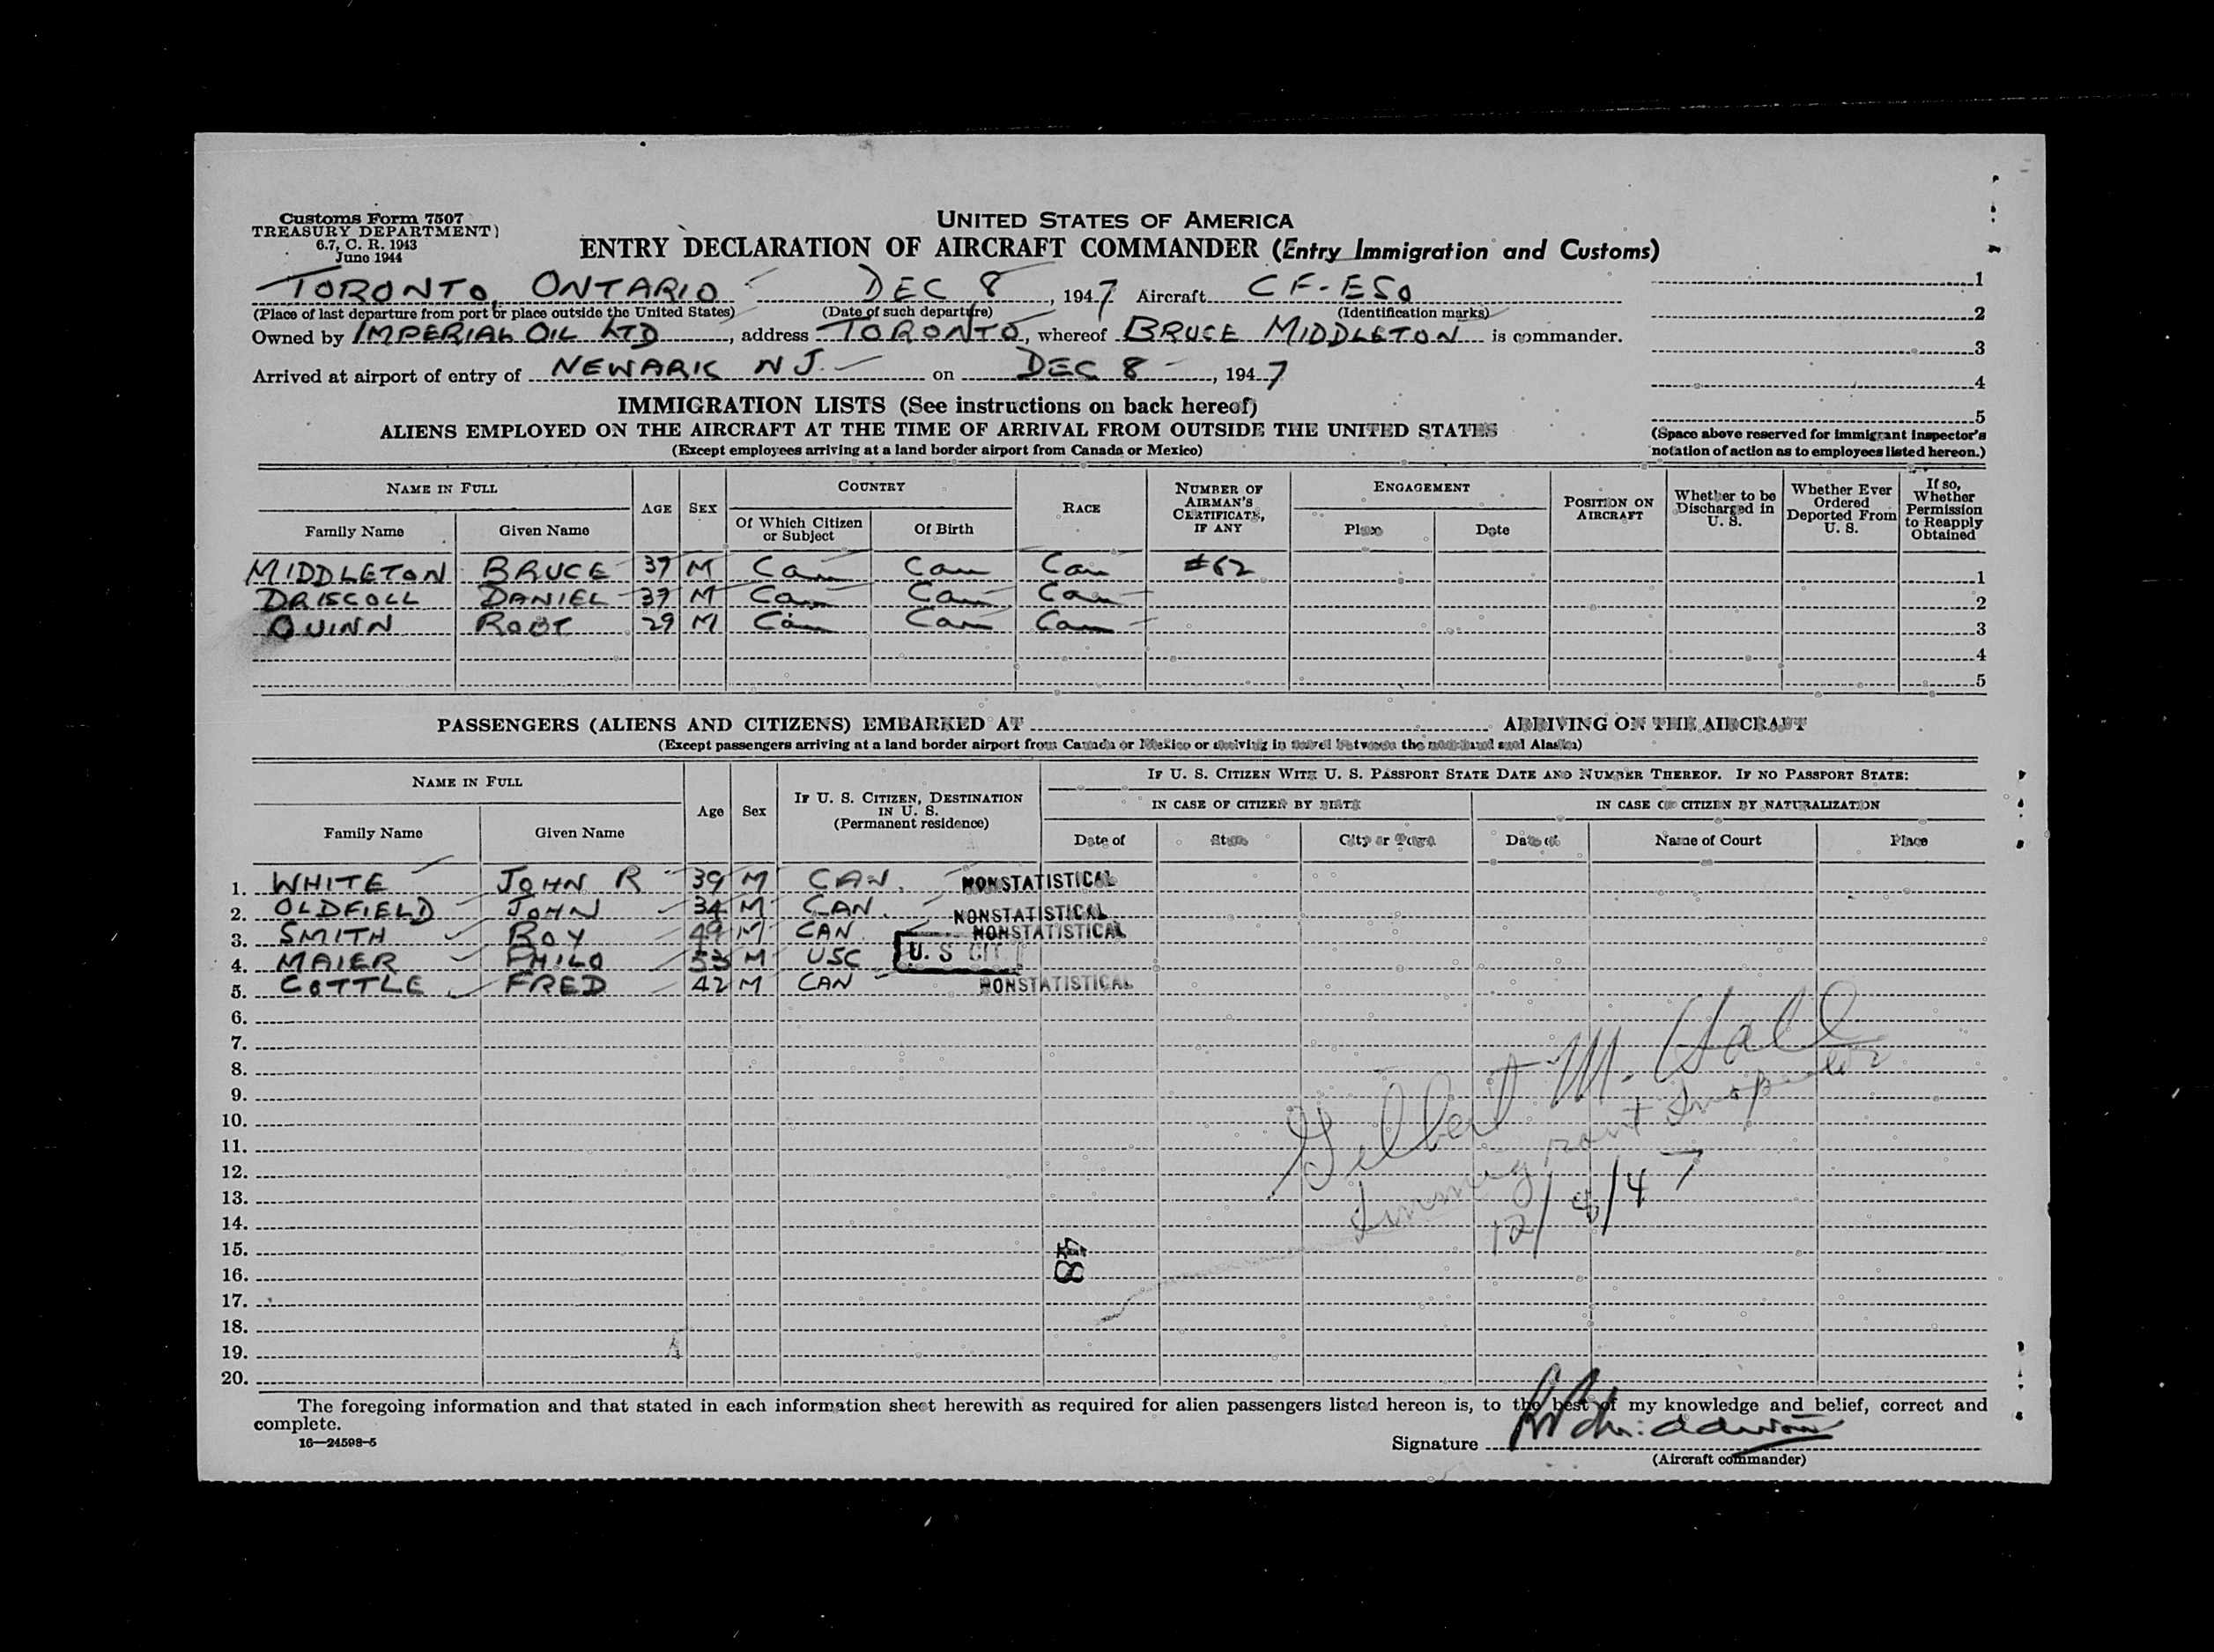 Customs Form 7507
TREASURY DEPARTMENT)
6.7, C. R. 1943
June 1944
UNITED STATES OF AMERICA
ENTRY DECLARATION OF AIRCRAFT COMMANDER (Entry Immigration and Customs)
TORONTO, ONTARIO DEC 8, 1947 Aircraft CF-ESO
(Place of last departure from port or place outside the United States) (Date of such departure) (Identification marks)
Owned by IMPERIAL OIL LTD, address TORONTO, whereof BRUCE MIDDLETON is commander.
Arrived at airport of entry of NEWARK N J. on DEC 8, 1947
1
2
3
4
5
(Space above reserved for immigrant inspector's
notation of action as to employees listed hereon.)
IMMIGRATION LISTS (See instructions on back hereof)
ALIENS EMPLOYED ON THE AIRCRAFT AT THE TIME OF ARRIVAL FROM OUTSIDE THE UNITED STATES
(Except employees arriving at a land border airport from Canada or Mexico)
NAME IN FULL AGE SEX COUNTRY RACE NUMBER OF AIRMAN'S CERTIFICATE, IF ANY ENGAGEMENT POSITION ON AIRCRAFT Whether to be Discharged in U. S. Whether Ever Ordered Deported From U. S. If so, Whether Permission to Reapply Obtained
Family Name Given Name Of Which Citizen or Subject Of Birth Place Date
MIDDLETON BRUCE 37 M Can Can Can #62 1
DRISCOLL DANIEL 37 M Can Can Can 2
QUINN ROBT 29 M Can Can Can 3
4
5
PASSENGERS (ALIENS AND CITIZENS) EMBARKED AT ARRIVING ON THE AIRCRAFT
(Except passengers arriving at a land border airport from Canada or Mexico or arriving in travel between the mainland and Alaska)
NAME IN FULL Age Sex IF U. S. CITIZEN, DESTINATION IN U. S. (Permanent residence) IF U. S. CITIZEN WITH U. S. PASSPORT STATE DATE AND NUMBER THEREOF. IF NO PASSPORT STATE:
IN CASE OF CITIZEN BY BIRTH IN CASE OF CITIZEN BY NATURALIZATION
Family Name Given Name Date of State City or Town Date of Name of Court Place
1. WHITE JOHN R 39 M CAN. NONSTATISTICAL
2. OLDFIELD JOHN 34 M CAN. NONSTATISTICAL
3. SMITH ROY 49 M CAN NONSTATISTICAL
4. MAIER PHILO 53 M USC U. S CIT
5. COTTLE FRED 42 M CAN NONSTATISTICAL
6.
7.
8.
9.
10.
11.
12.
13.
14.
15.
16.
17.
18.
19.
20.
Gilbert M. Hall
Immigrant Inspector
12/8/47
48
The foregoing information and that stated in each information sheet herewith as required for alien passengers listed hereon is, to the best of my knowledge and belief, correct and
complete.
16—24598-5
Signature
(Aircraft commander)